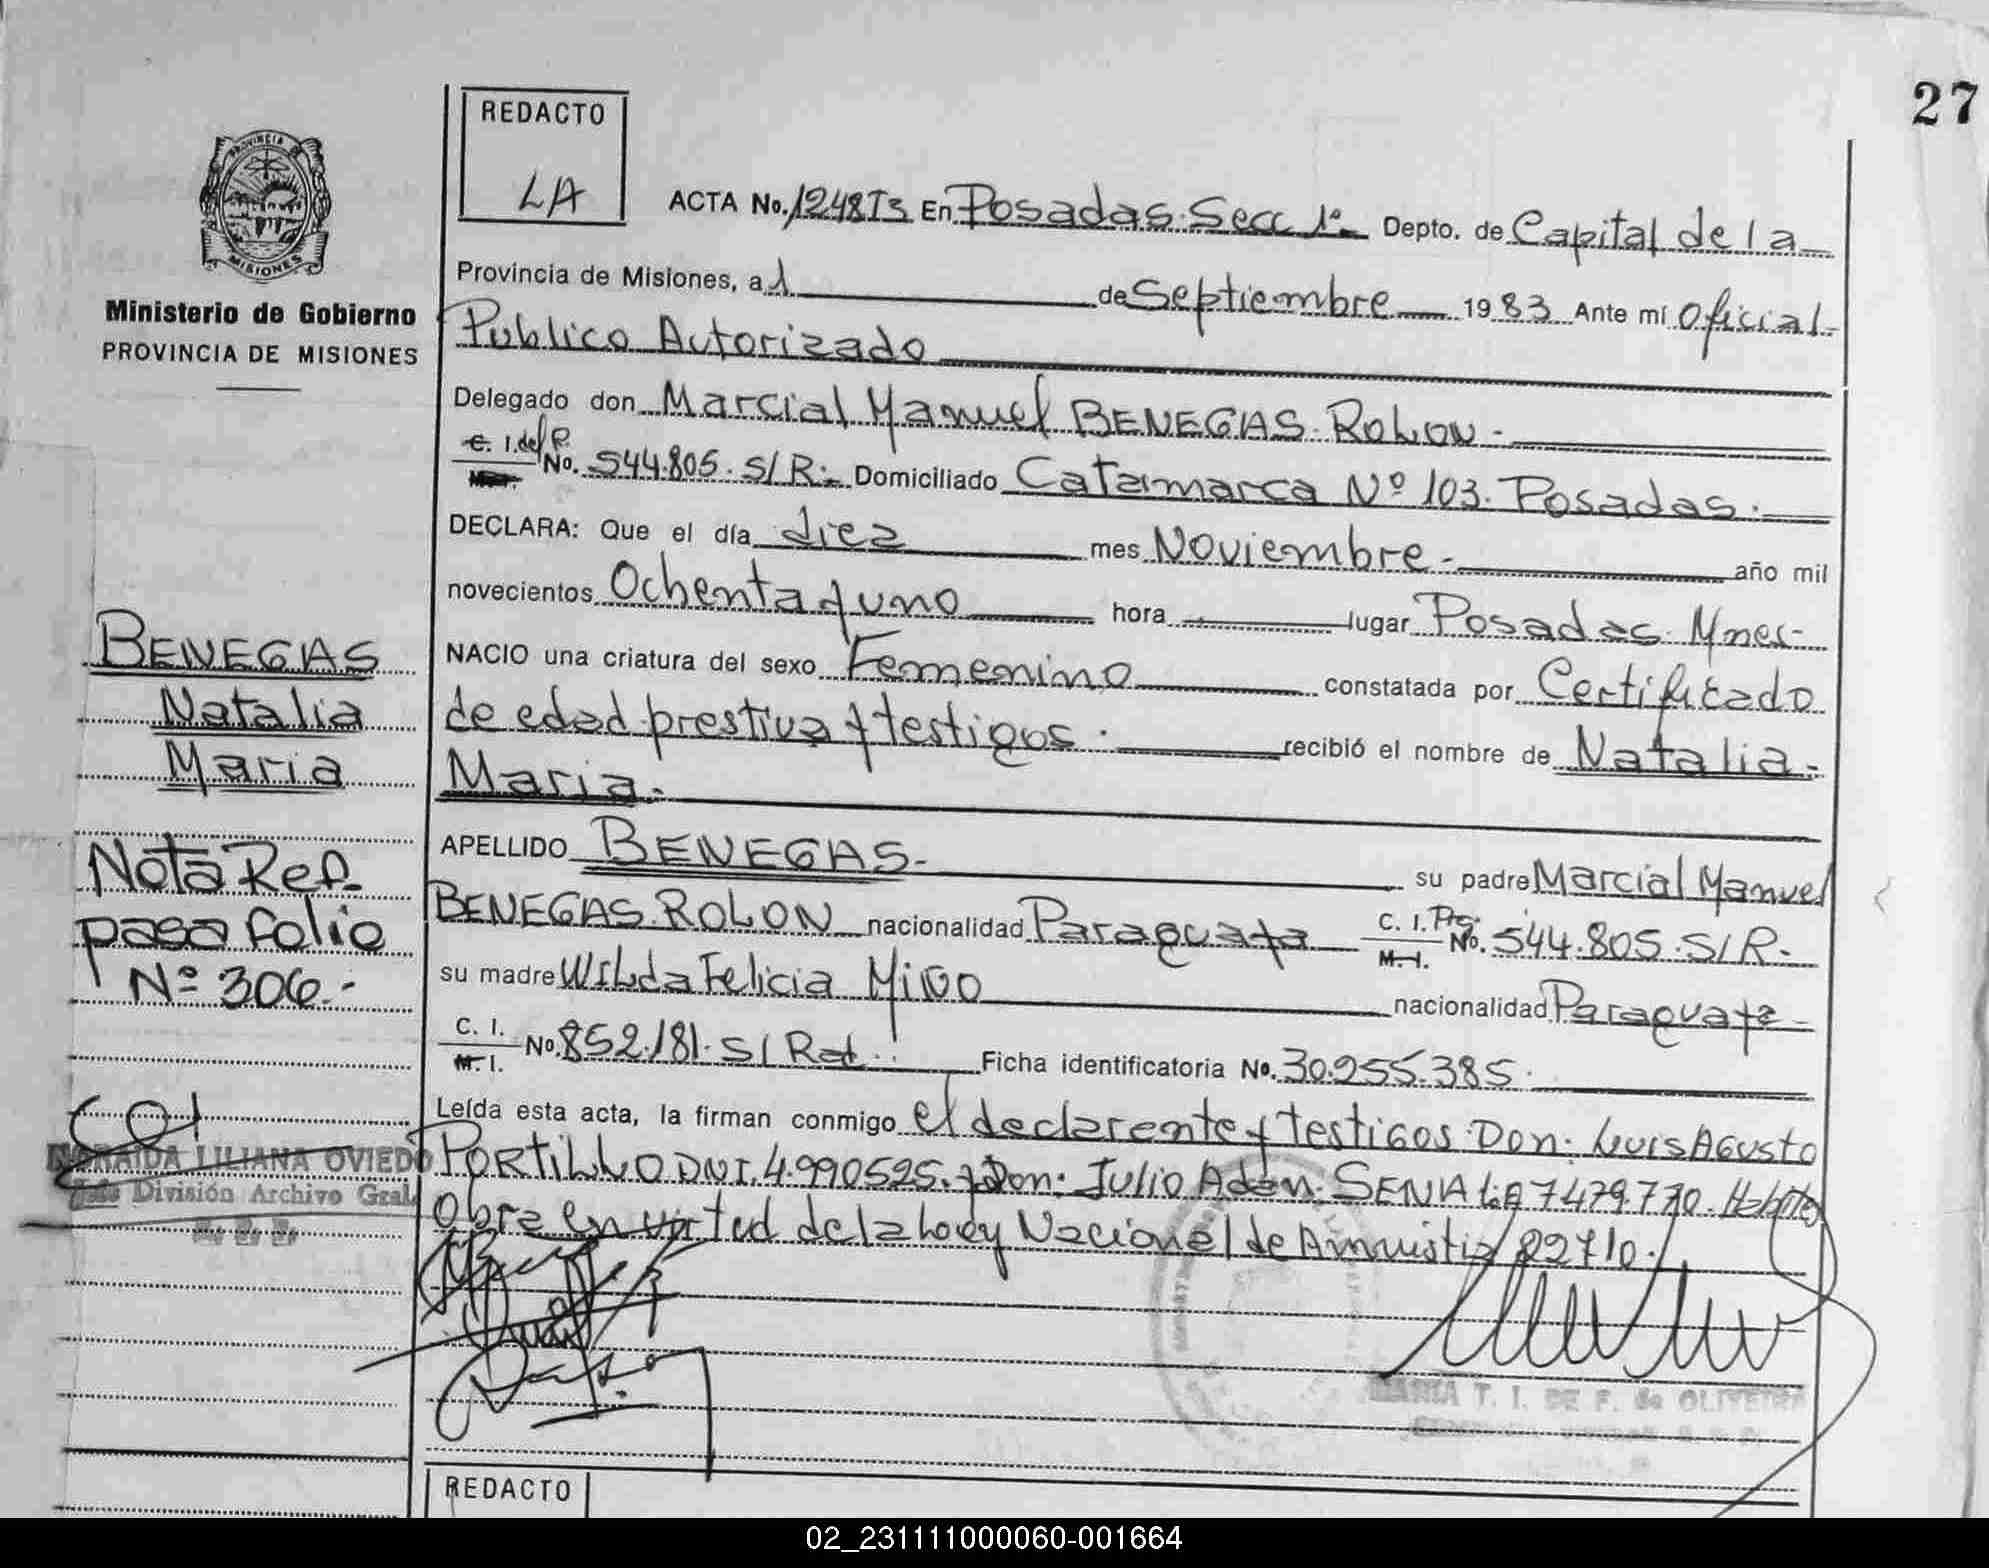 27
REDACTO
LA
PROVINCIA DE
MISIONES
Ministerio de Gobierno
PROVINCIA DE MISIONES
ACTA No. 1248T3 En Posadas. Secc 1ª Depto. de Capital de la
Provincia de Misiones, a 1 de Septiembre 1983 Ante mí Oficial
Publico Autorizado
Delegado don Marcial Manuel BENEGAS. ROLON.
C. I. del P. No. 544.805. S/R. Domiciliado Catamarca Nº 103. Posadas.
DECLARA: Que el día diez mes Noviembre. año mil
novecientos Ochenta y uno hora lugar Posadas. Mnes.
NACIO una criatura del sexo Femenino constatada por Certificado
de edad prestiva y testigos. recibió el nombre de Natalia
Maria.
APELLIDO BENEGAS. su padre Marcial Manuel
BENEGAS. ROLON nacionalidad Paraguaya C. I. No. 544.805. S/R.
M. I.
su madre Wilda Felicia Miño nacionalidad Paraguaya
C. I. No. 852.181. S/Rat. Ficha identificatoria No. 30.255.385.
M. I.
Leída esta acta, la firman conmigo el declarente y testigos Don: Luis Agusto
PORTILLO DNI. 4.990525. y Don: Julio Adan. SENA L.E 7479.770.
Obra en virtud de la Ley Nacional de Amnistia 22710.
BENEGAS
Natalia
Maria
Nota Ref.
pasa folio
Nº 306.-
LILIANA OVIEDO
Jefe División Archivo Gral.
MARIA T. I. DE F. de OLIVEIRA
REDACTO
02_231111000060-001664